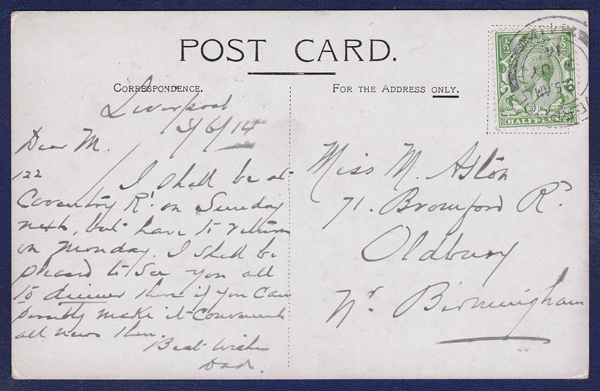 POST CARD.
CORRESPONDENCE.
FOR THE ADDRESS ONLY.
Liverpool
5/6/14
Dear M.
122 I shall be at
Coventry Rd. on Sunday
next, but have to return
on Monday. I shall be
pleased to see you all
to dinner there if you can
possibly make it convenient
all news then.
Best wishes
Dad.
Miss M. Aston
71. Bromford Rd.
Oldbury
Nr. Birmingham
HALFPENNY